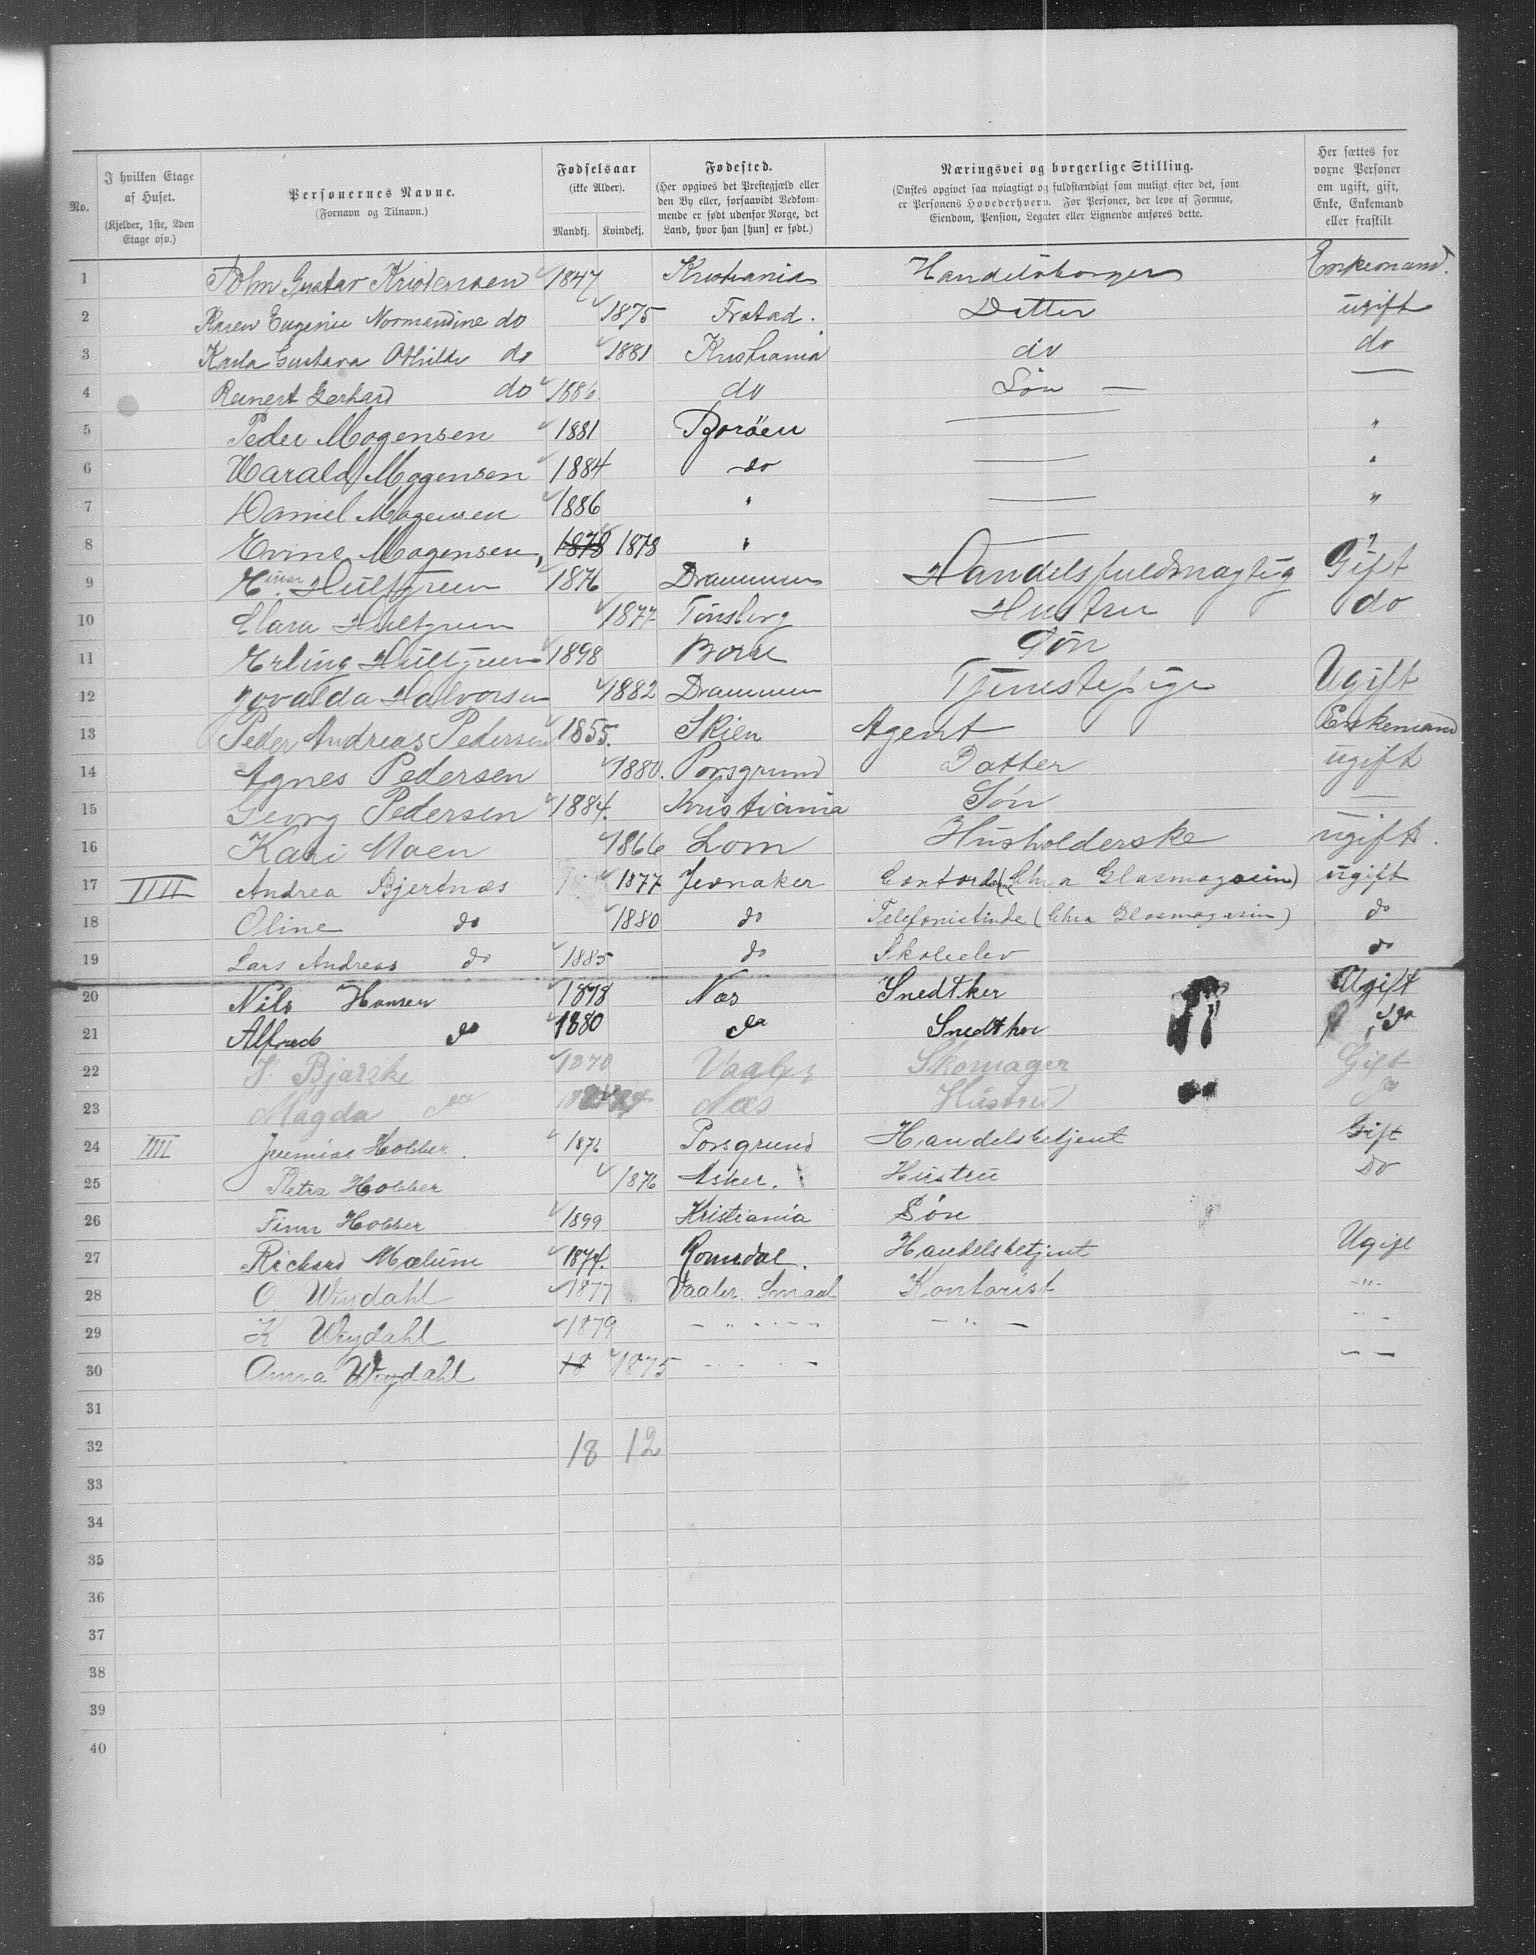 No.
I hvilken Etage af Huset. (Kjelder, 1ste, 2den Etage osv.)
Personernes Navne. (Fornavn og Tilnavn.)
Fødselsaar (ikke Alder). Mandkj. Kvindekj.
Fødested. (Her opgives det Prestegjæld eller den By eller, forsaavidt Vedkommende er født udenfor Norge, det Land, hvor han [hun] er født.)
Næringsvei og borgerlige Stilling. (Ønskes opgivet saa nøiagtigt og fuldstændigt som muligt efter det, som er Personens Hovederhverv. For Personer, der leve af Formue, Eiendom, Pension, Legater eller Lignende anføres dette.)
Her sættes for voxne Personer om ugift, gift, Enke, Enkemand eller fraskilt
1 John Gustav Kristensen 1847 Kristiania Handelsborger Enkemand.
2 Karen Eugenie Normandine do 1875 Frstad. Datter ugift
3 Karla Gustava Othilde do 1881 Kristiania do do
4 Reinert Gerhard do 1886 do Søn —
5 Peder Mogensen 1881 Borøen — "
6 Harald Mogensen 1884 do — "
7 Daniel Mogensen 1886 " — "
8 Mogensen, 1878 1878 " — "
9 Hultgreen 1876 Drammen Handelsfuldmægtig Gift
10 Clara Hultgreen 1877 Tønsberg Hustru do
11 Erling Hultgreen 1898 Borre Søn
12 Halvorsen 1882 Drammen Tjenestepige Ugift
13 Peder Andreas Pedersen 1855. Skien Agent Enkemand
14 Agnes Pedersen 1880. Porsgrund Datter ugift
15 Georg Pedersen 1884. Kristiania Søn —
16 Kari Moen 1866 Lom Husholderske ugift.
17 IIII Andrea Bjertnæs 1877 Jevnaker (Chra Glasmagasin) ugift
18 Oline do 1880 do Telefonistinde (Chra Glasmagasin) do
19 Lars Andreas do 1885 do Skoleelev do
20 Nils Hansen 1878 Næs Snedker Ugift
21 Alfred do 1880 do Snedker do
22 Bjærke 1870 Vaaler Skomager Gift
23 Magda do Næs Hustru do
24 IIII Jeremias Hobber. 1872 Porsgrund Handelsbetjent Gift
25 Petra Hobber 1876 Asker. Hustru Do
26 Finn Hobber 1899 Kristiania Søn
27 Richard Mælum 1874. Romedal. Handelsbetjent Ugift
28 O. Weydahl 1877 Vaaler. Smaal Kontorist -"-
29 K Weydahl 1879 - " - " - - - " -
30 Anna Weydahl 18 1875 - - - - — —
31
32 18 12
33
34
35
36
37
38
39
40